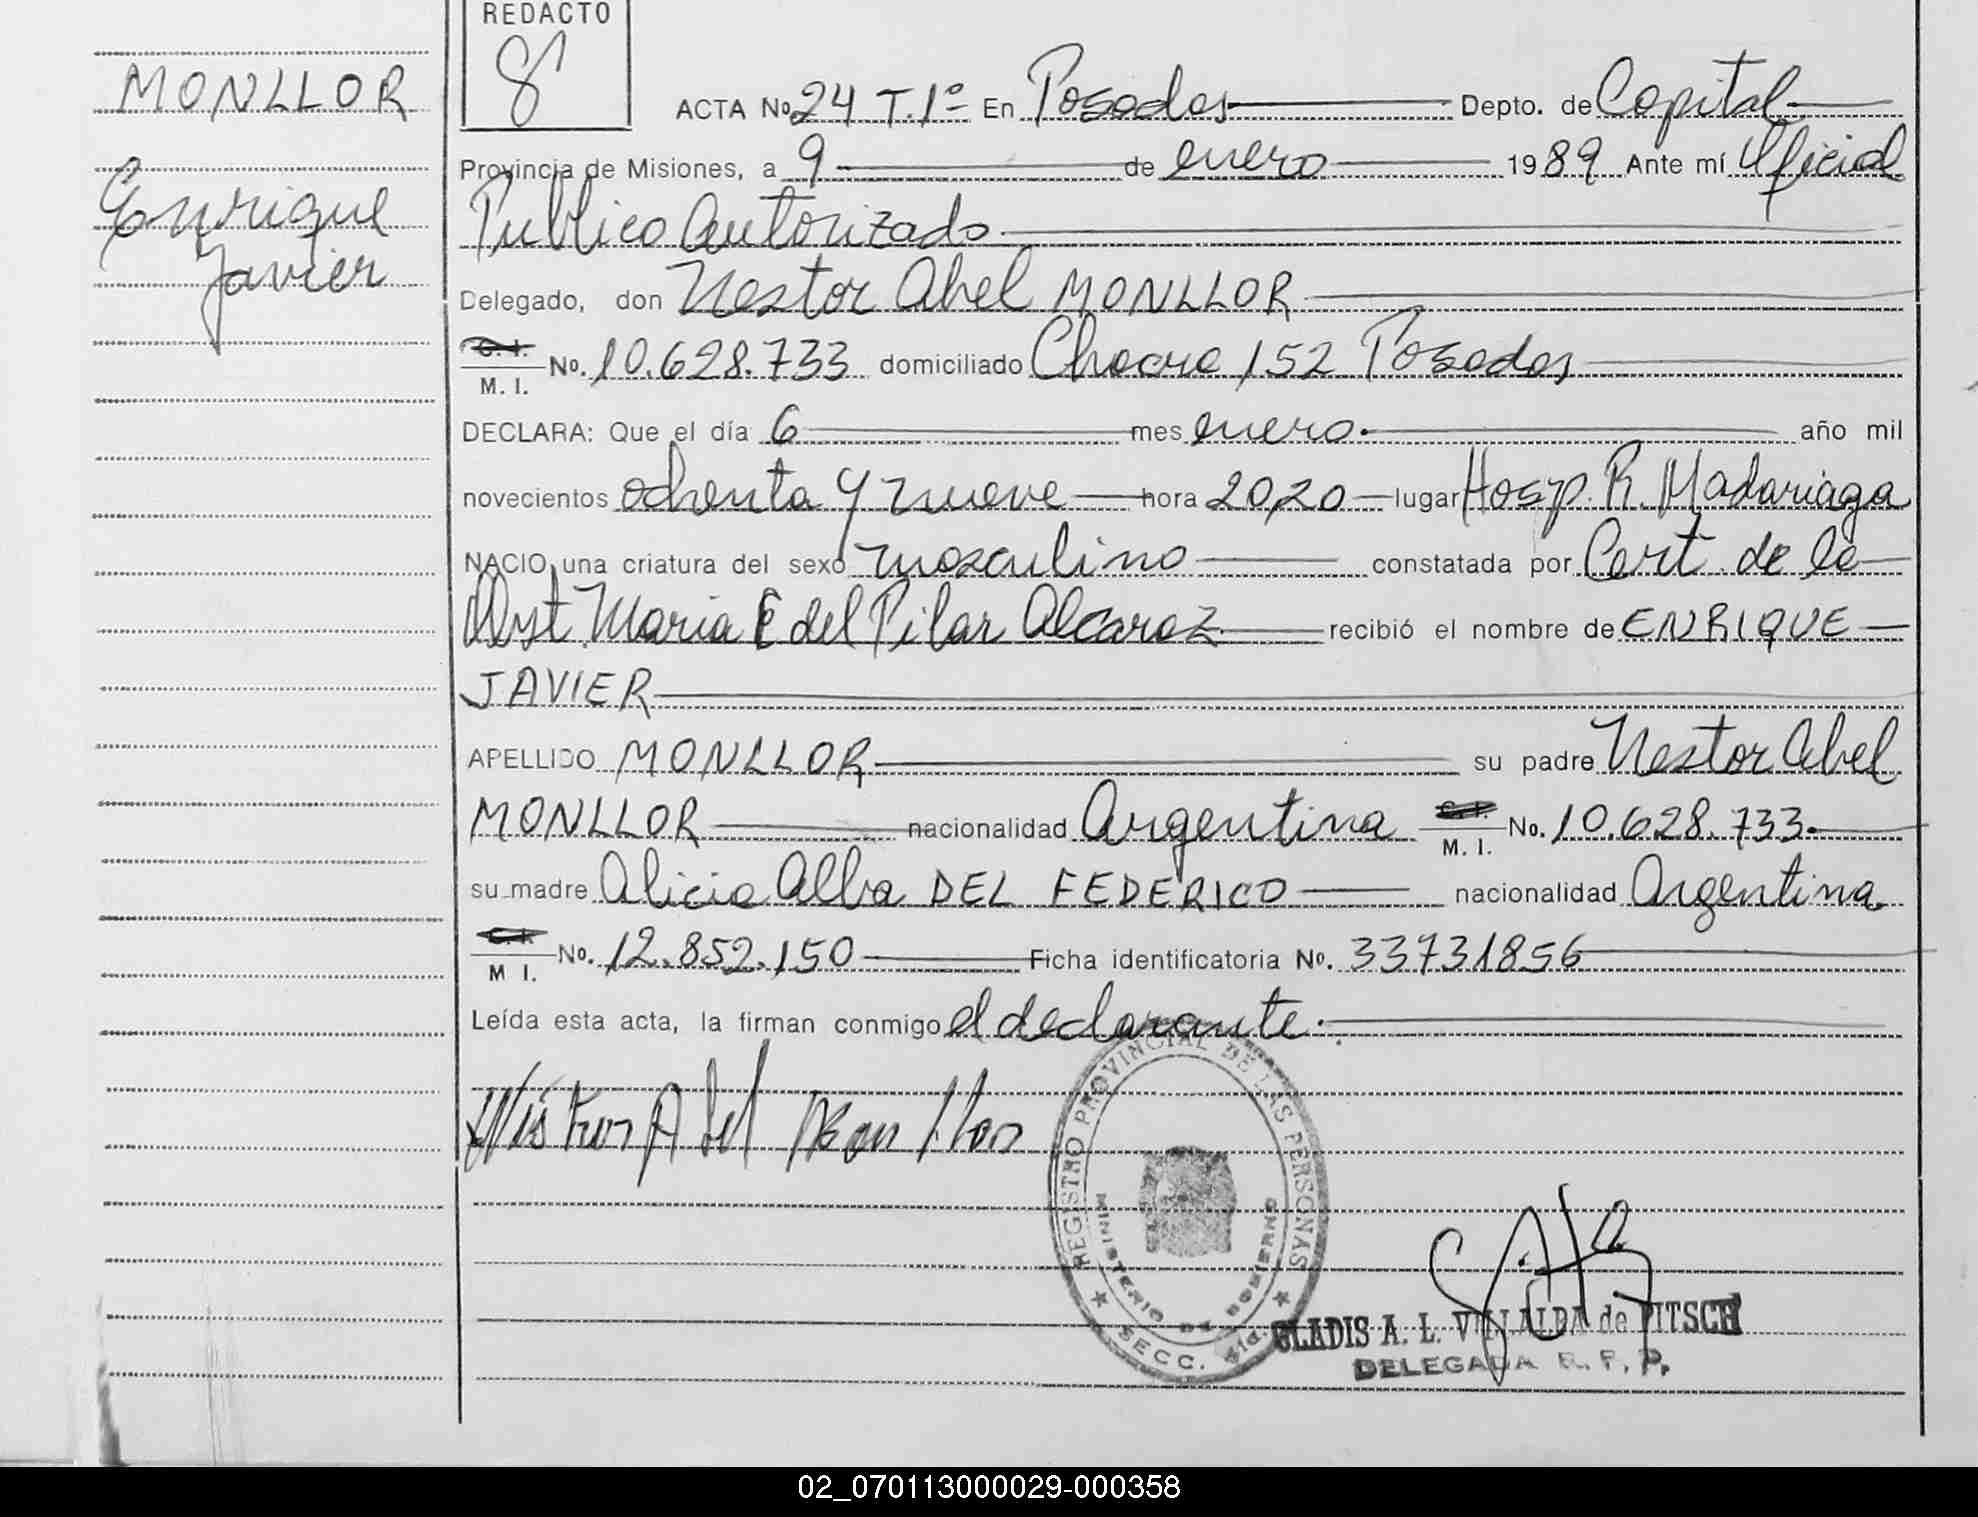 REDACTO
8
MONLLOR
Enrique
Javier
ACTA No. 24 T.1º En Posadas Depto. de Capital
Provincia de Misiones, a 9 de enero 1989 Ante mí Oficial
Publico Autorizado
Delegado, don Nestor Abel MONLLOR
C. I.
M. I. No. 10.628.733 domiciliado Chacra 152 Posadas
DECLARA: Que el día 6 mes enero. año mil
novecientos ochenta y nueve hora 20,20 lugar Hosp. R. Madariaga
NACIO una criatura del sexo masculino constatada por Cert. de la
Obst. Maria E del Pilar Alcaraz recibió el nombre de ENRIQUE
JAVIER
APELLIDO MONLLOR su padre Nestor Abel
MONLLOR nacionalidad Argentina M. I. No. 10.628.733.
su madre Alicia Alba DEL FEDERICO nacionalidad Argentina.
M I. No. 12.852.150 Ficha identificatoria No. 33731856
Leída esta acta, la firman conmigo el declarante.
Néstor Abel Monllor
REGISTRO PROVINCIAL DE LAS PERSONAS
MINISTERIO DE GOBIERNO
SECC. 
GLADIS A. L. VILLALBA de PITSCH
DELEGADA R. P. P.
02_070113000029-000358